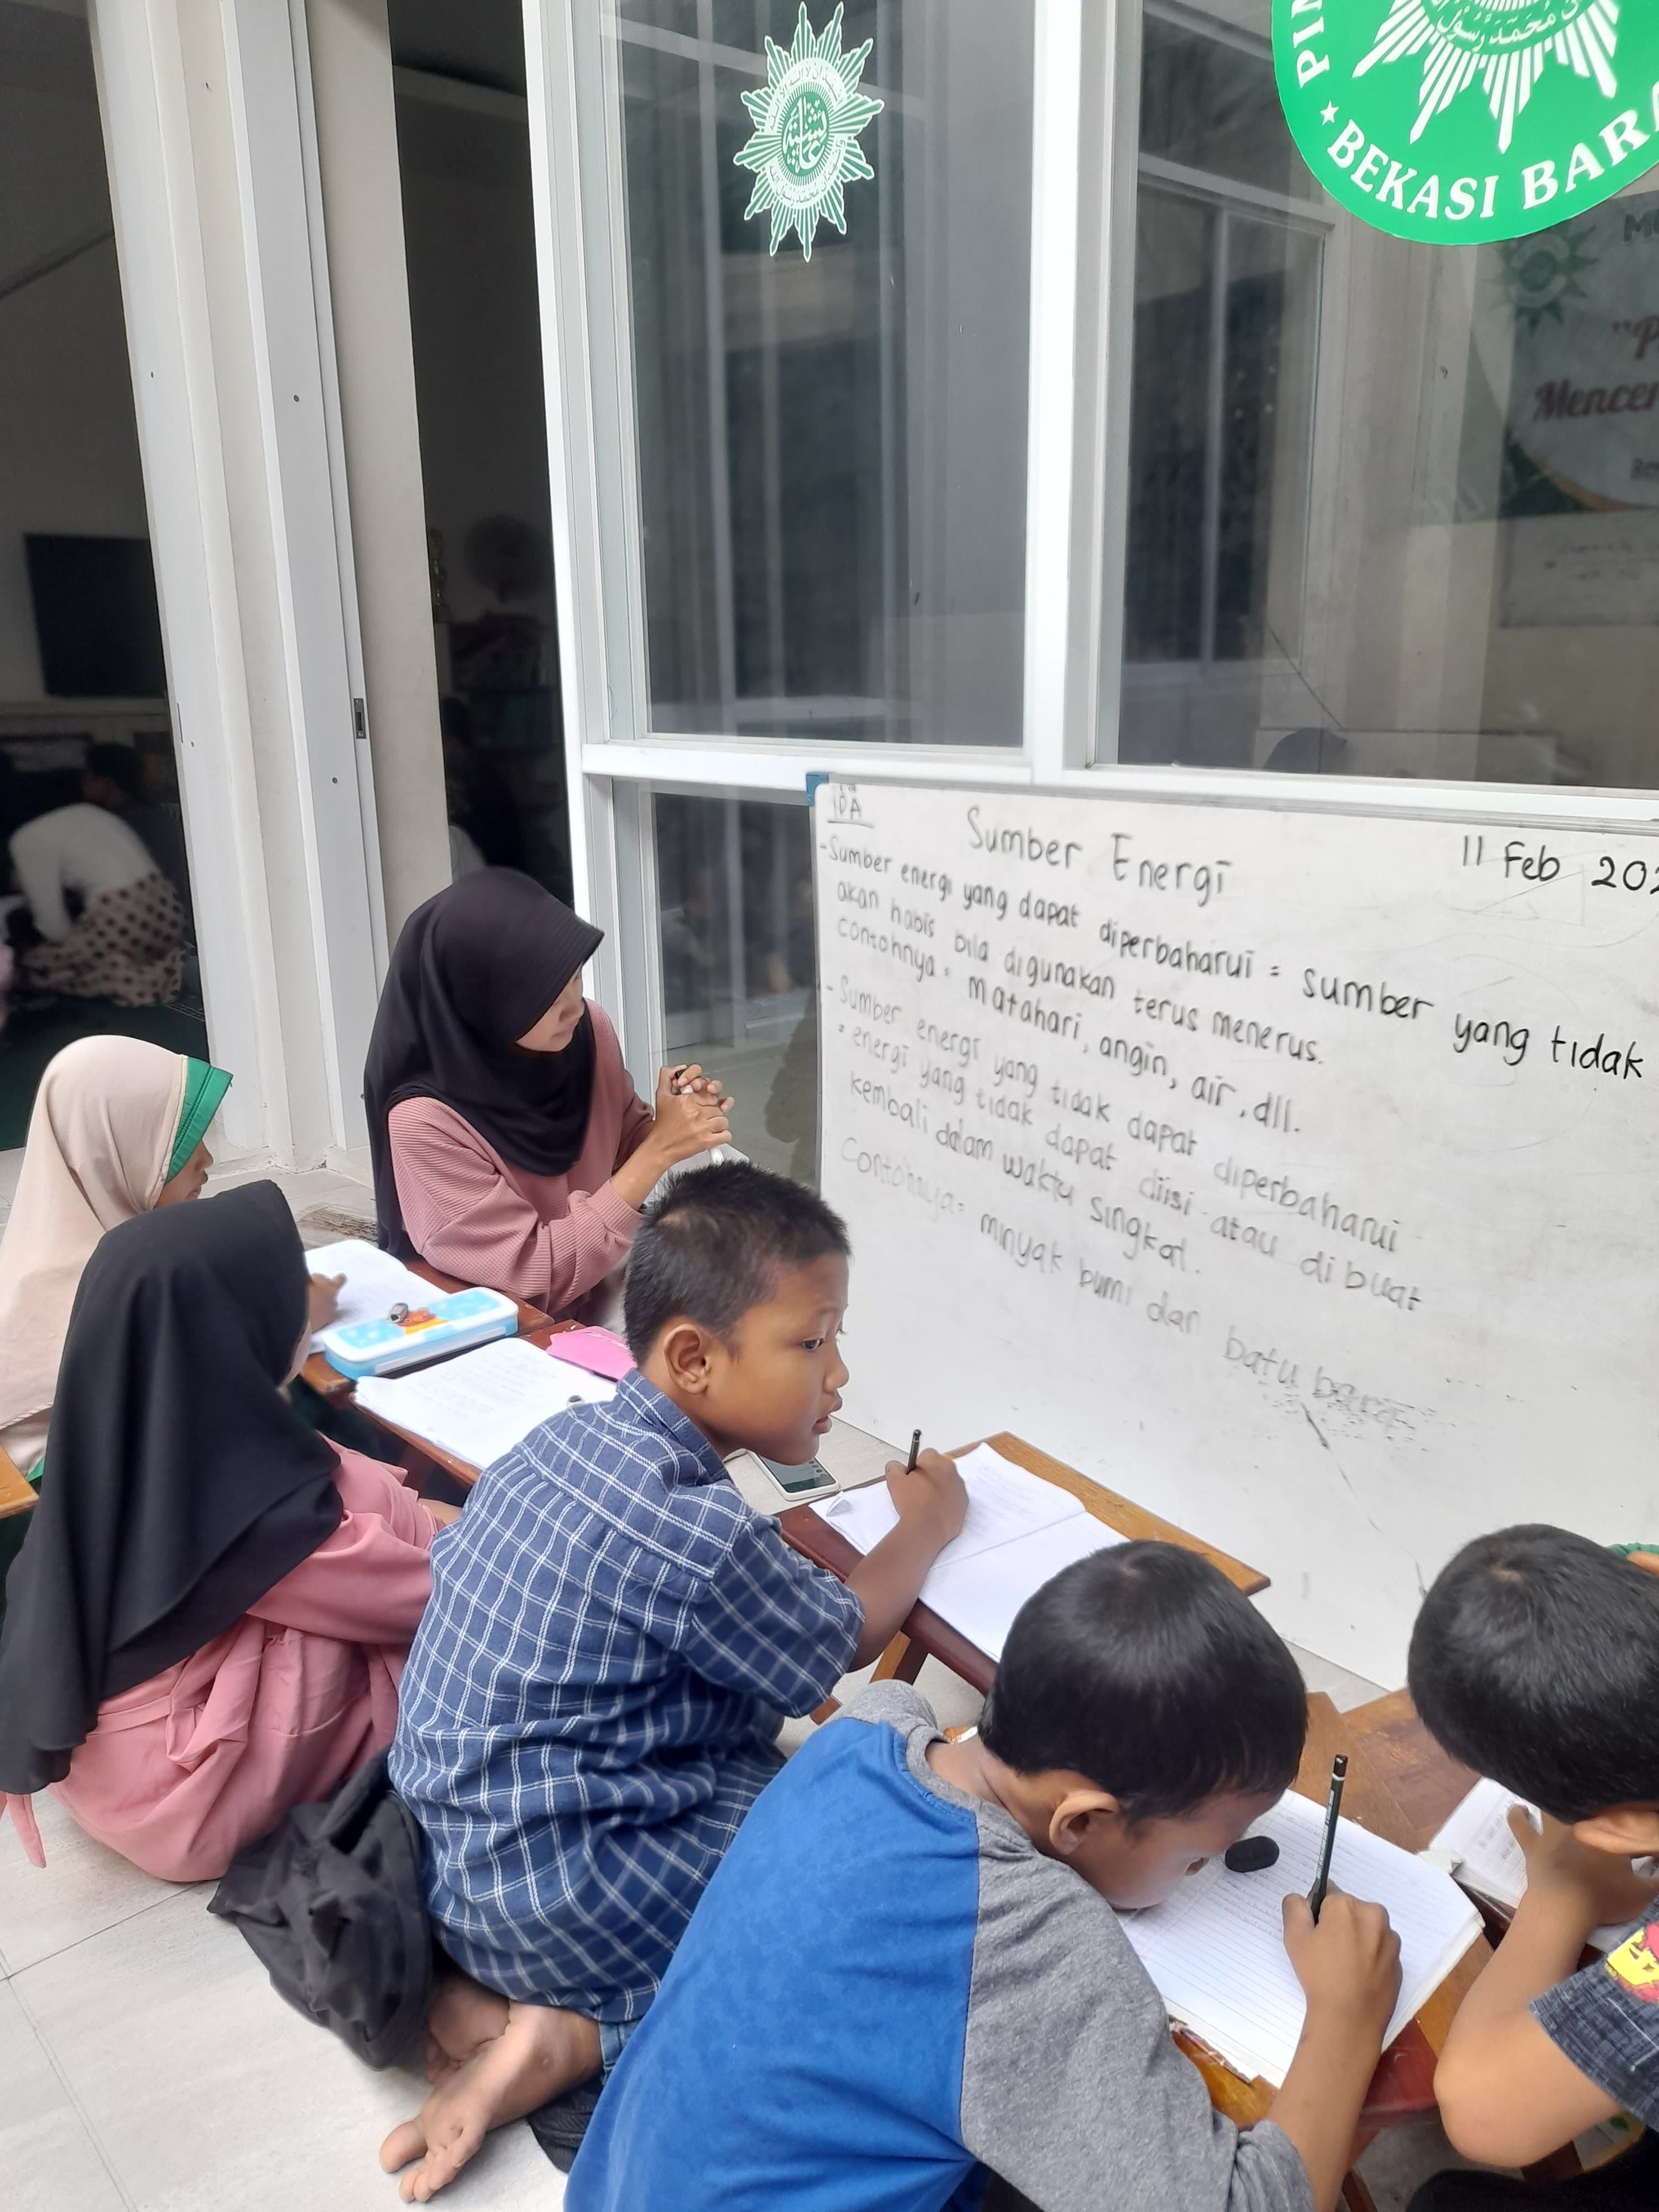 BEKASI BARA
"P
Mencer
IPA
Sumber Energi
11 Feb 202
- Sumber energi yang dapat diperbaharui = sumber yang tidak
akan habis bila digunakan terus menerus.
contohnya = matahari, angin, air, dll.
- Sumber energi yang tidak dapat diperbaharui
= energi yang tidak dapat diisi atau dibuat
kembali dalam waktu singkat.
Contohnya = minyak bumi dan batu bara